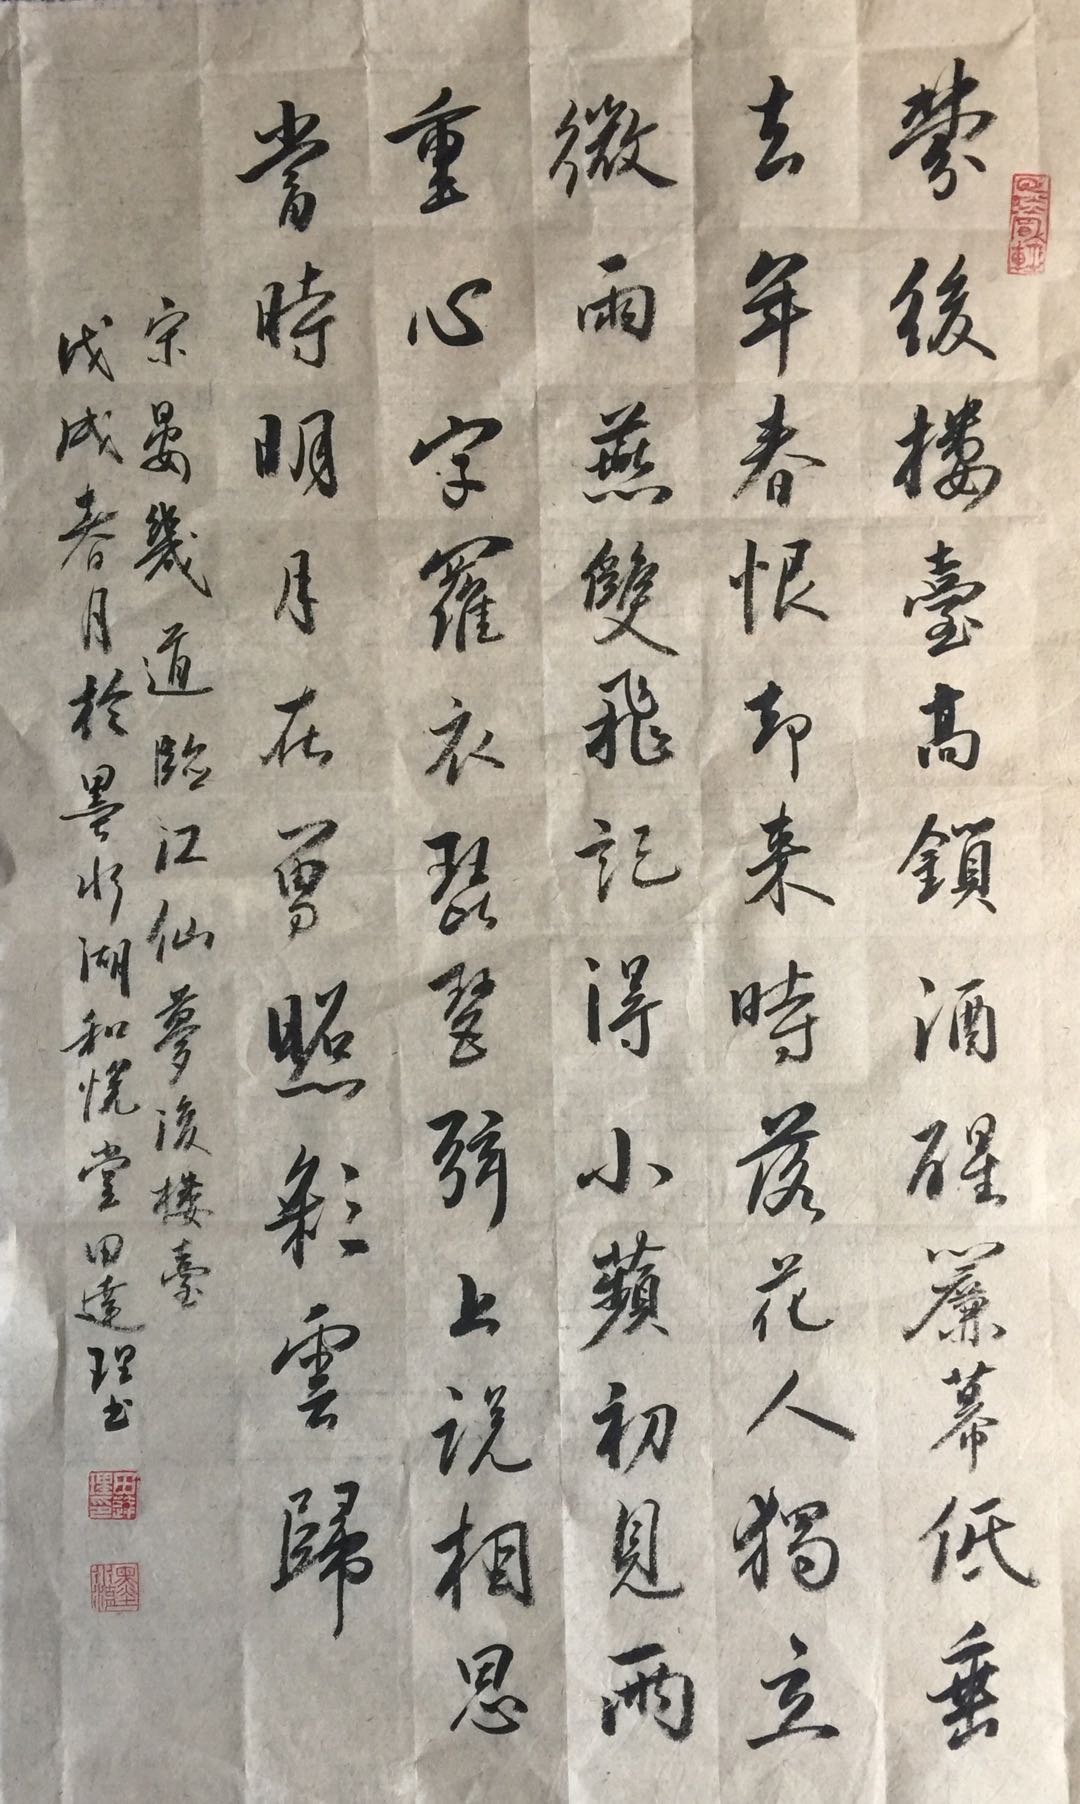 夢後樓臺高鎖酒醒簾幕低垂
去年春恨却来時落花人獨立
微雨燕雙飛記得小蘋初見兩
重心字羅衣琵琶弦上説相思
當時明月在曾照彩雲歸
宋晏幾道臨江仙夢後樓臺
戊戌春月於墨水湖和悦堂田達理书